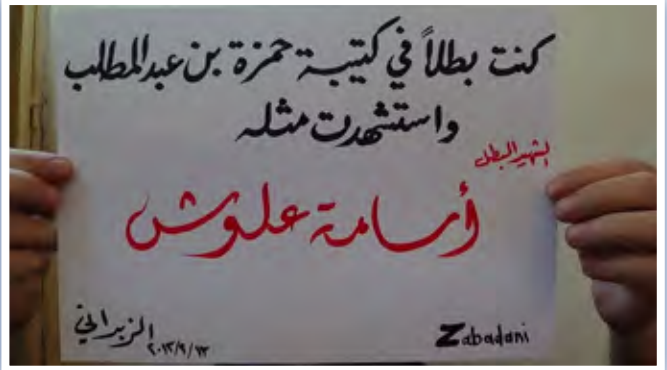 كنت بطلاً في كتيبة حمزة بن عبد المطلب
واستشهدت مثله
الشهيد البطل
أسامة علوش
الزبداني
Zabadani